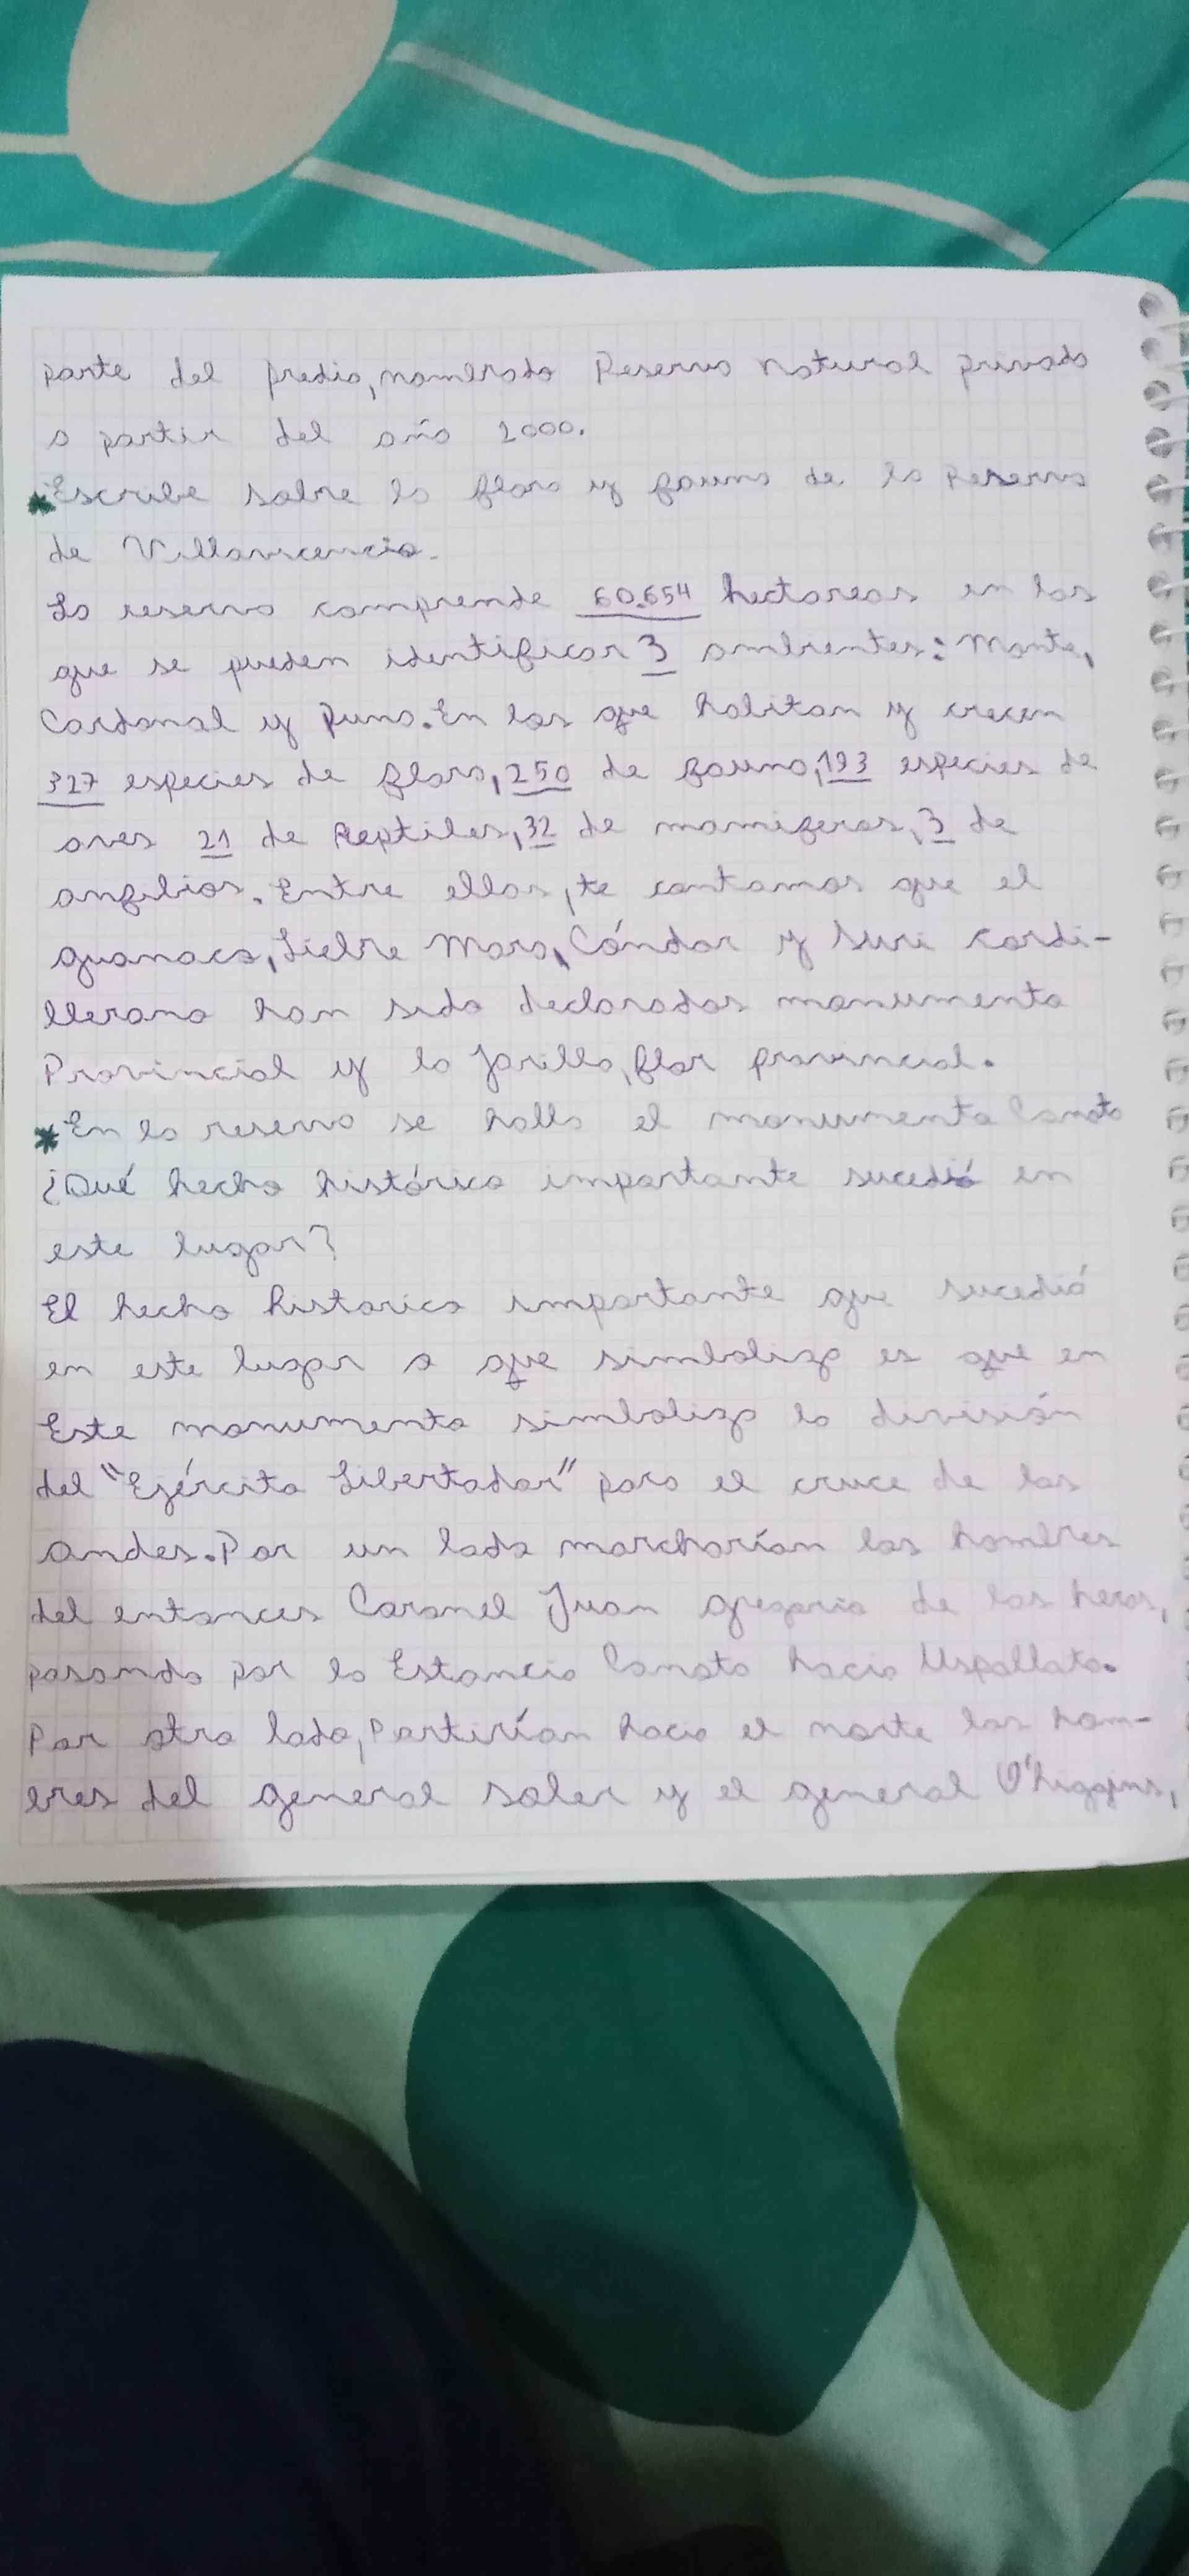 parte del predio, nombrada Reserva natural privada
a partir del año 2000.
*Escribe sobre la flora y fauna de la reserva
de Villavicencio.
La reserva comprende 60.654 hectareas en las
que se pueden identificar 3 ambientes: Monte,
Cardonal y Puna. En las que habitan y crecen
327 especies de flora, 250 de fauna, 193 especies de
aves 21 de Reptiles, 32 de mamiferos, 3 de
anfibios. Entre ellos, te contamos que el
guanaco, Liebre Mara, Cóndor y Suri cordi-
llerano han sido declarados monumento
Provincial y la Jarilla, flor provincial.
*En la reserva se halla el monumento Canota
¿Qué hecho histórico importante sucedió en
este lugar?
El hecho historico importante que sucedió
en este lugar o que simboliza es que en
Este monumento simboliza la división
del "Ejército Libertador" para el cruce de los
andes. Por un lado marcharían los hombres
del entonces Coronel Juan gregorio de las heras,
pasando por la Estancia Canota hacia Uspallata.
Por otro lado, Partirían hacia el norte los hom-
bres del general soler y el general O'higgins,